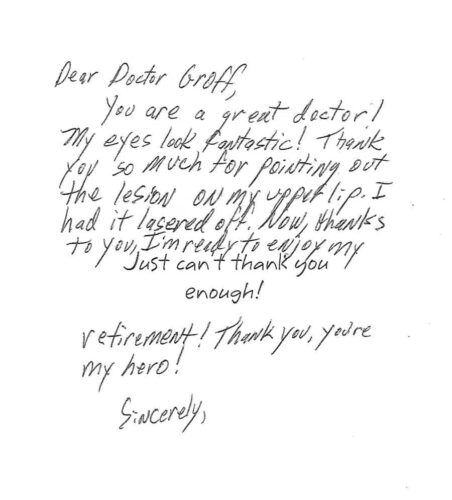 Dear Doctor Groff,
You are a great doctor!
My eyes look fantastic! Thank
you so much for pointing out
the lesion on my upper lip. I
had it lasered off. Now, thanks
to you, I'm ready to enjoy my
Just can't thank you
enough!
retirement! Thank you, you're
my hero!
Sincerely,